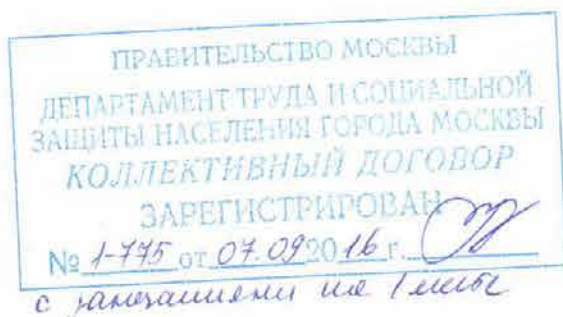 ПРАВИТЕЛЬСТВО МОСКВЫ
ДЕПАРТАМЕНТ ТРУДА И СОЦИАЛЬНОЙ
ЗАЩИТЫ НАСЕЛЕНИЯ ГОРОДА МОСКВЫ
КОЛЛЕКТИВНЫЙ ДОГОВОР
ЗАРЕГИСТРИРОВАН
№ 1-775 от 07.09 2016 г.
с замечаниями на 1 листе